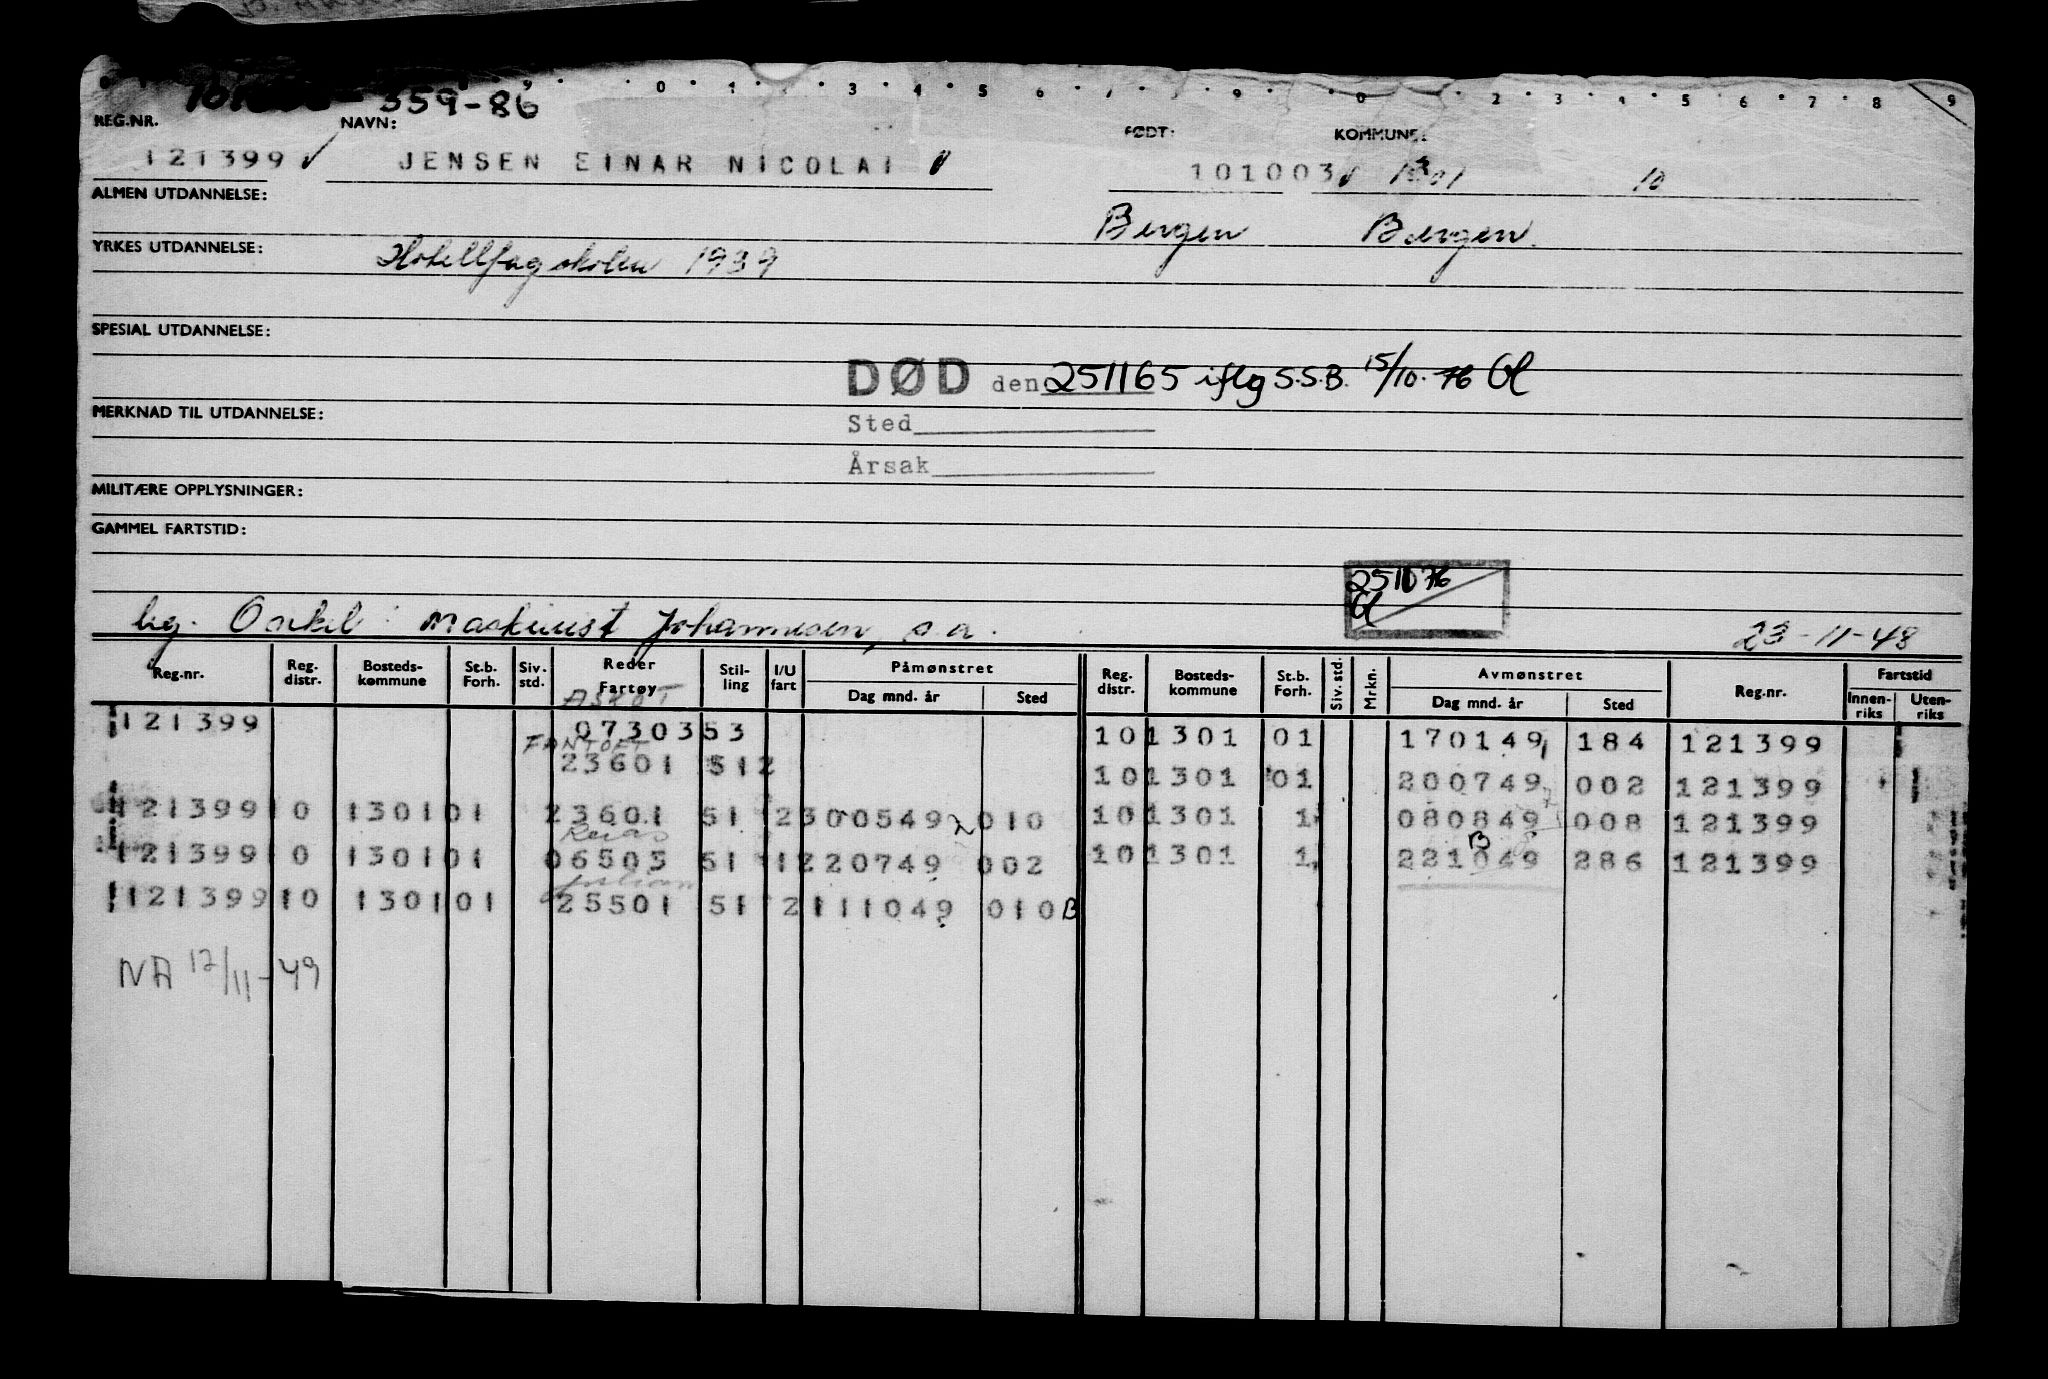 359-86
0 1 3 4 5 6 7 9 0 2 3 4 5 6 7 8 9
REG.NR. NAVN: FØDT: KOMMUNE:
121399 JENSEN EINAR NICOLAI 101003 1301 10
ALMEN UTDANNELSE:
Bergen Bergen.
YRKES UTDANNELSE: Hotellfagskolen 1939
SPESIAL UTDANNELSE:
DØD den 251165 iflg S.S.B. 15/10-76
MERKNAD TIL UTDANNELSE:
Sted
Årsak
MILITÆRE OPPLYSNINGER:
GAMMEL FARTSTID:
251076
leg. Onkel: maskinist Johannesen, s.a. 23-11-48
Reg.nr. Reg. distr. Bosteds- kommune St.b. Forh. Siv. std. Reder Fartøy Stil- ling I/U fart Påmønstret Dag mnd. år Sted Reg. distr. Bosteds- kommune St.b. Forh. Siv. std. Mrkn. Avmønstret Dag mnd. år Sted Reg.nr. Fartstid Innen- riks Uten- riks
ASKOT
121399 0730353 101301 01 170149 184 121399
FANTOFT
23601 512 101301 01 200749 002 121399
121399 10 1301 01 23601 51 2 300549 010 101301 1 080849 008 121399
Reias
121399 10 1301 01 06503 51 12 220749 002 101301 1 221049 286 121399
B
121399 10 1301 01 25501 51 2 111049 010 B
NA 17/11-49